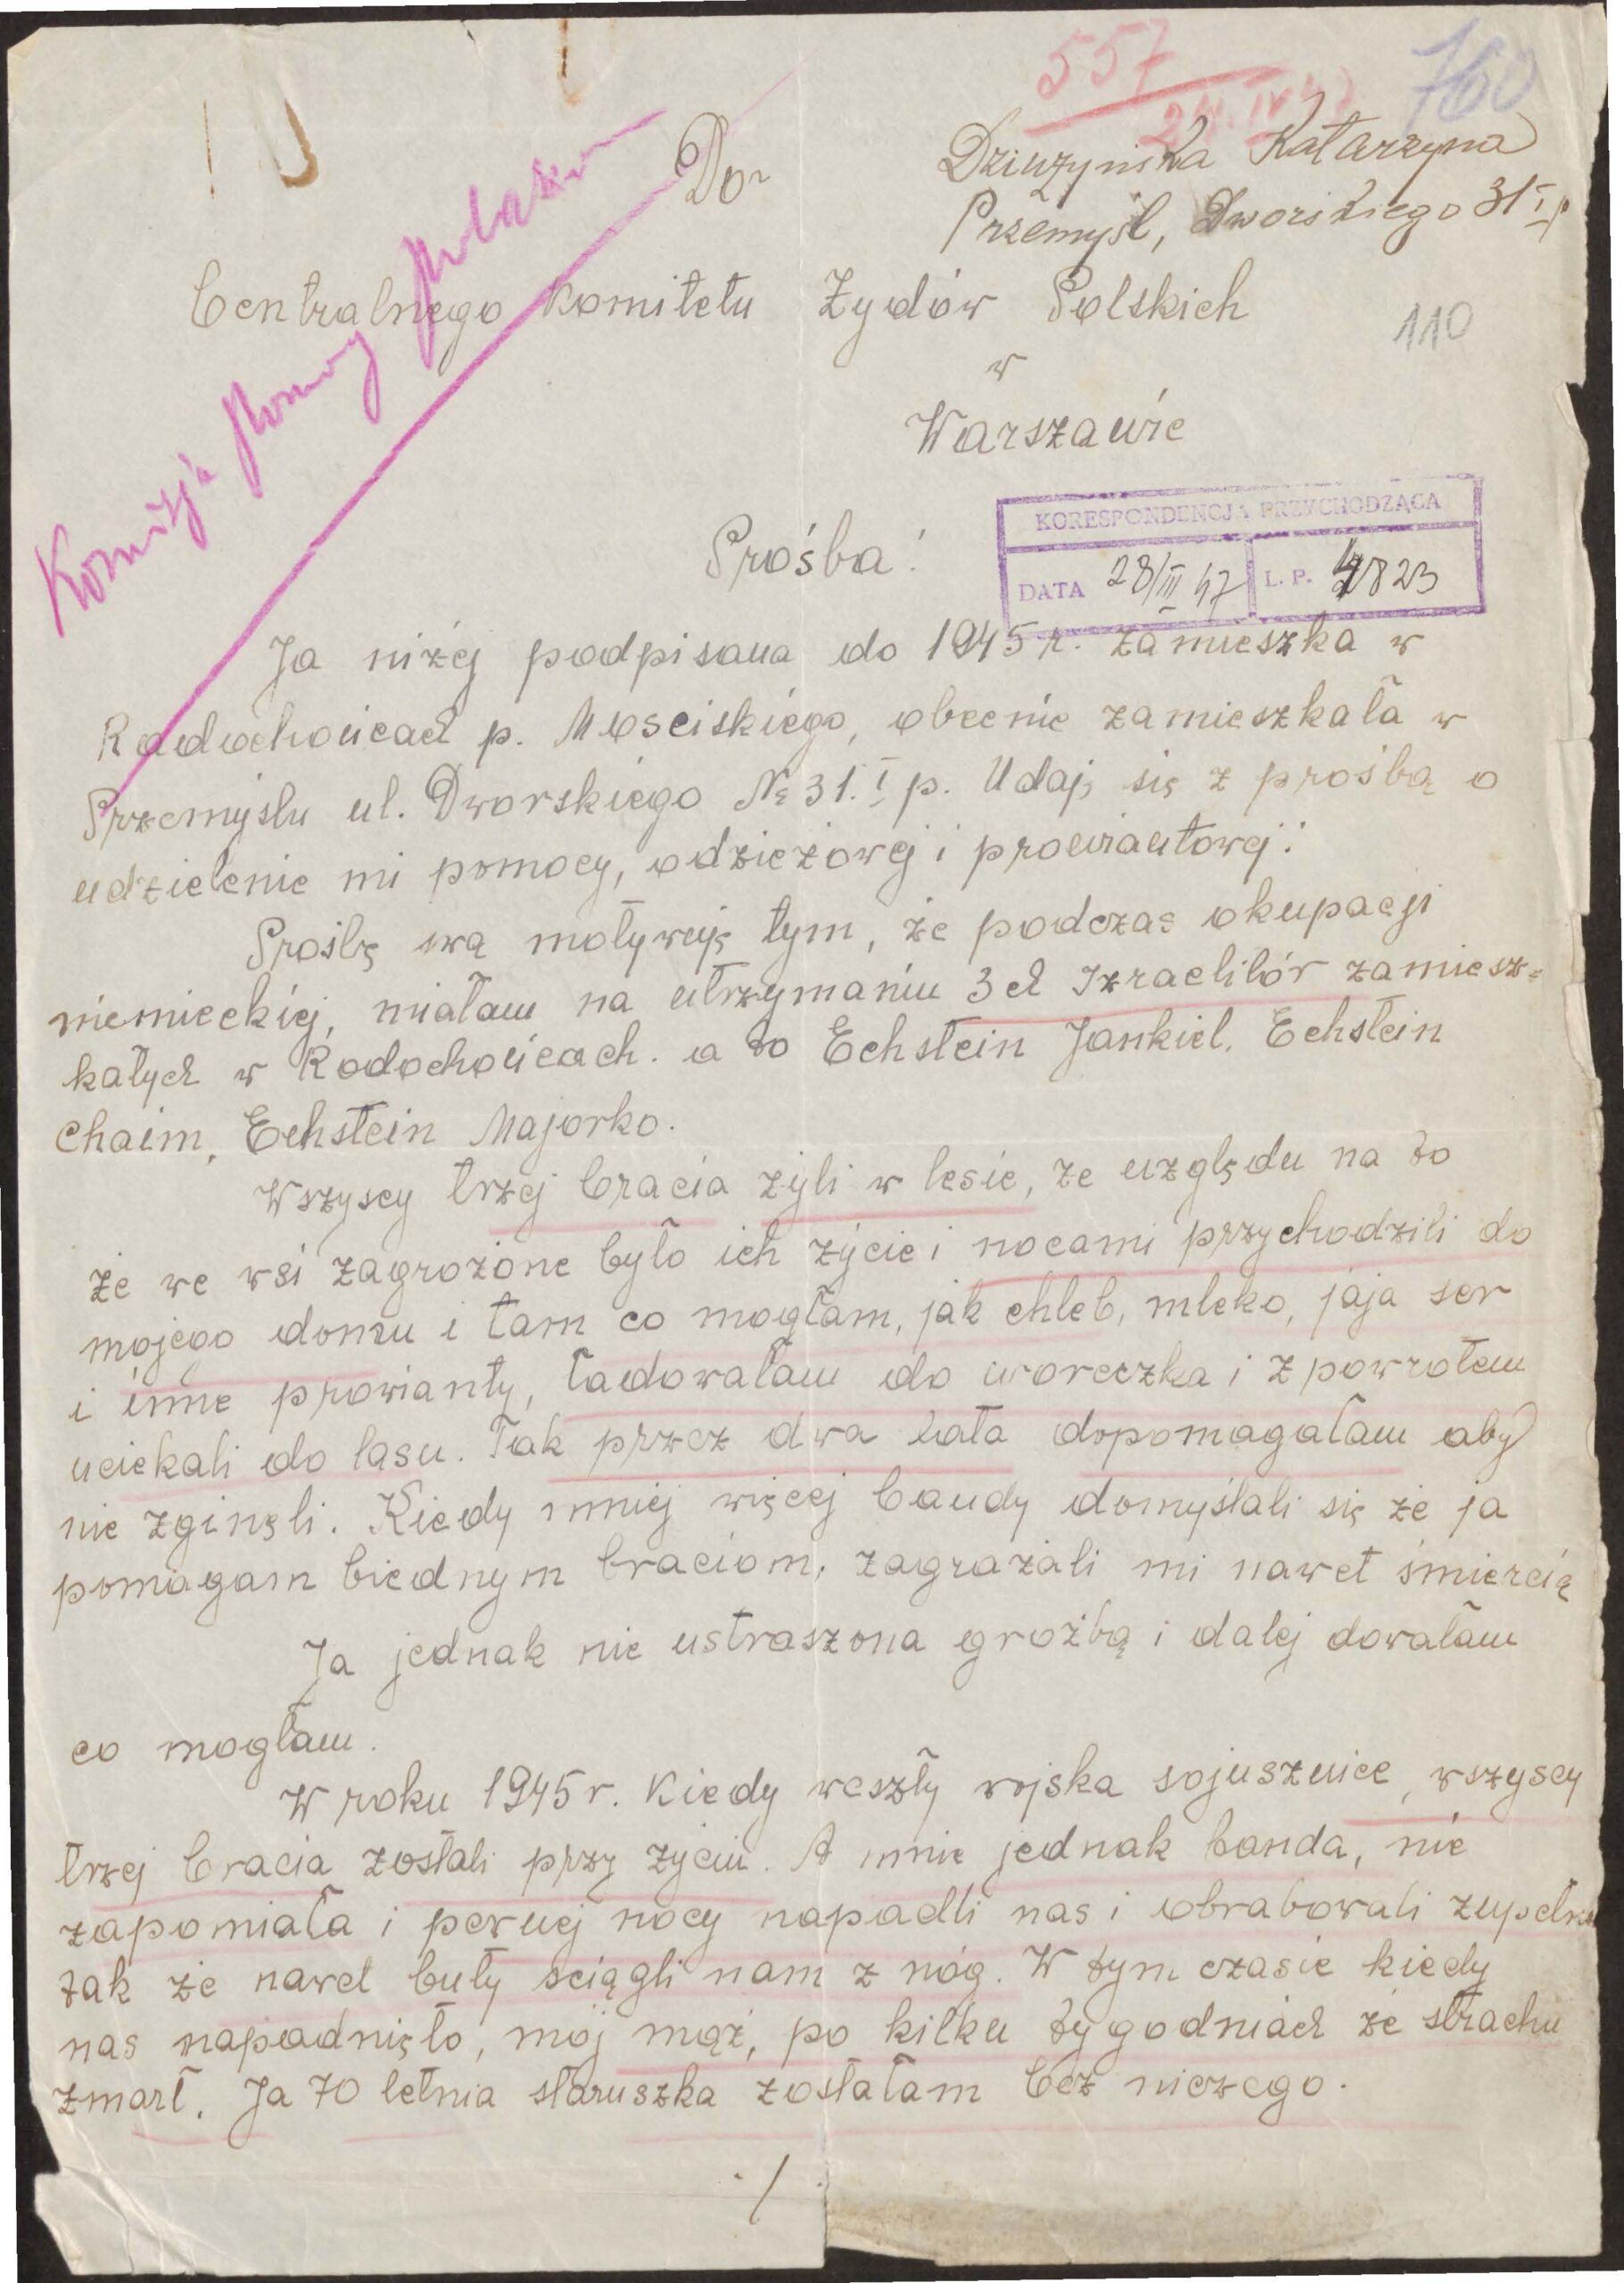 557
24.IV.47
760
Do
Dziużyńska Katarzyna
Przemyśl, Dworskiego 31 I p
Centralnego Komitetu Żydów Polskich
110
w
Warszawie
Komisja Pomocy Polakom
KORESPONDENCJA PRZYCHODZĄCA
DATA 28/III 47 L. P. 4823
Prośba!
Ja niżej podpisana do 1945 r. zamieszka w
Radochońcach p. Mosciskiego, obecnie zamieszkała w
Przemyślu ul. Dworskiego № 31. I p. Udaję się z prośbą o
udzielenie mi pomocy, odzieżowej i prowiantowej:
Prośbę swą motywuję tym, że podczas okupacji
niemieckiej, miałam na utrzymaniu 3 ch Izraelitów zamiesz=
kałych w Radochońcach. a to Echstein Jankiel, Echstein
Chaim, Echstein Majorko.
Wszyscy trzej bracia żyli w lesie, ze względu na to
że we wsi zagrożone było ich życie i nocami przychodzili do
mojego domu i tam co mogłam, jak chleb, mleko, jaja ser
i inne prowianty, ładowałam do woreczka i z powrotem
uciekali do lasu. Tak przez dwa lata dopomagałam aby
nie zginęli. Kiedy mniej więcej bandy domyślali się że ja
pomagam biednym braciom, zagrażali mi nawet śmiercią
Ja jednak nie ustraszona groźbą i dalej dowałam
co mogłam.
W roku 1945 r. Kiedy weszły wojska sojusznice, wszyscy
trzej bracia zostali przy życiu. A mnie jednak banda, nie
zapomiała i pewnej nocy napadli nas i obrabowali zupełnie
tak że nawet buty sciągli nam z nóg. W tym czasie kiedy
nas napadnięto, mój mąż, po kilku tygodniach ze strachu
zmarł. Ja 70 letnia staruszka zostałam bez niczego.
./.